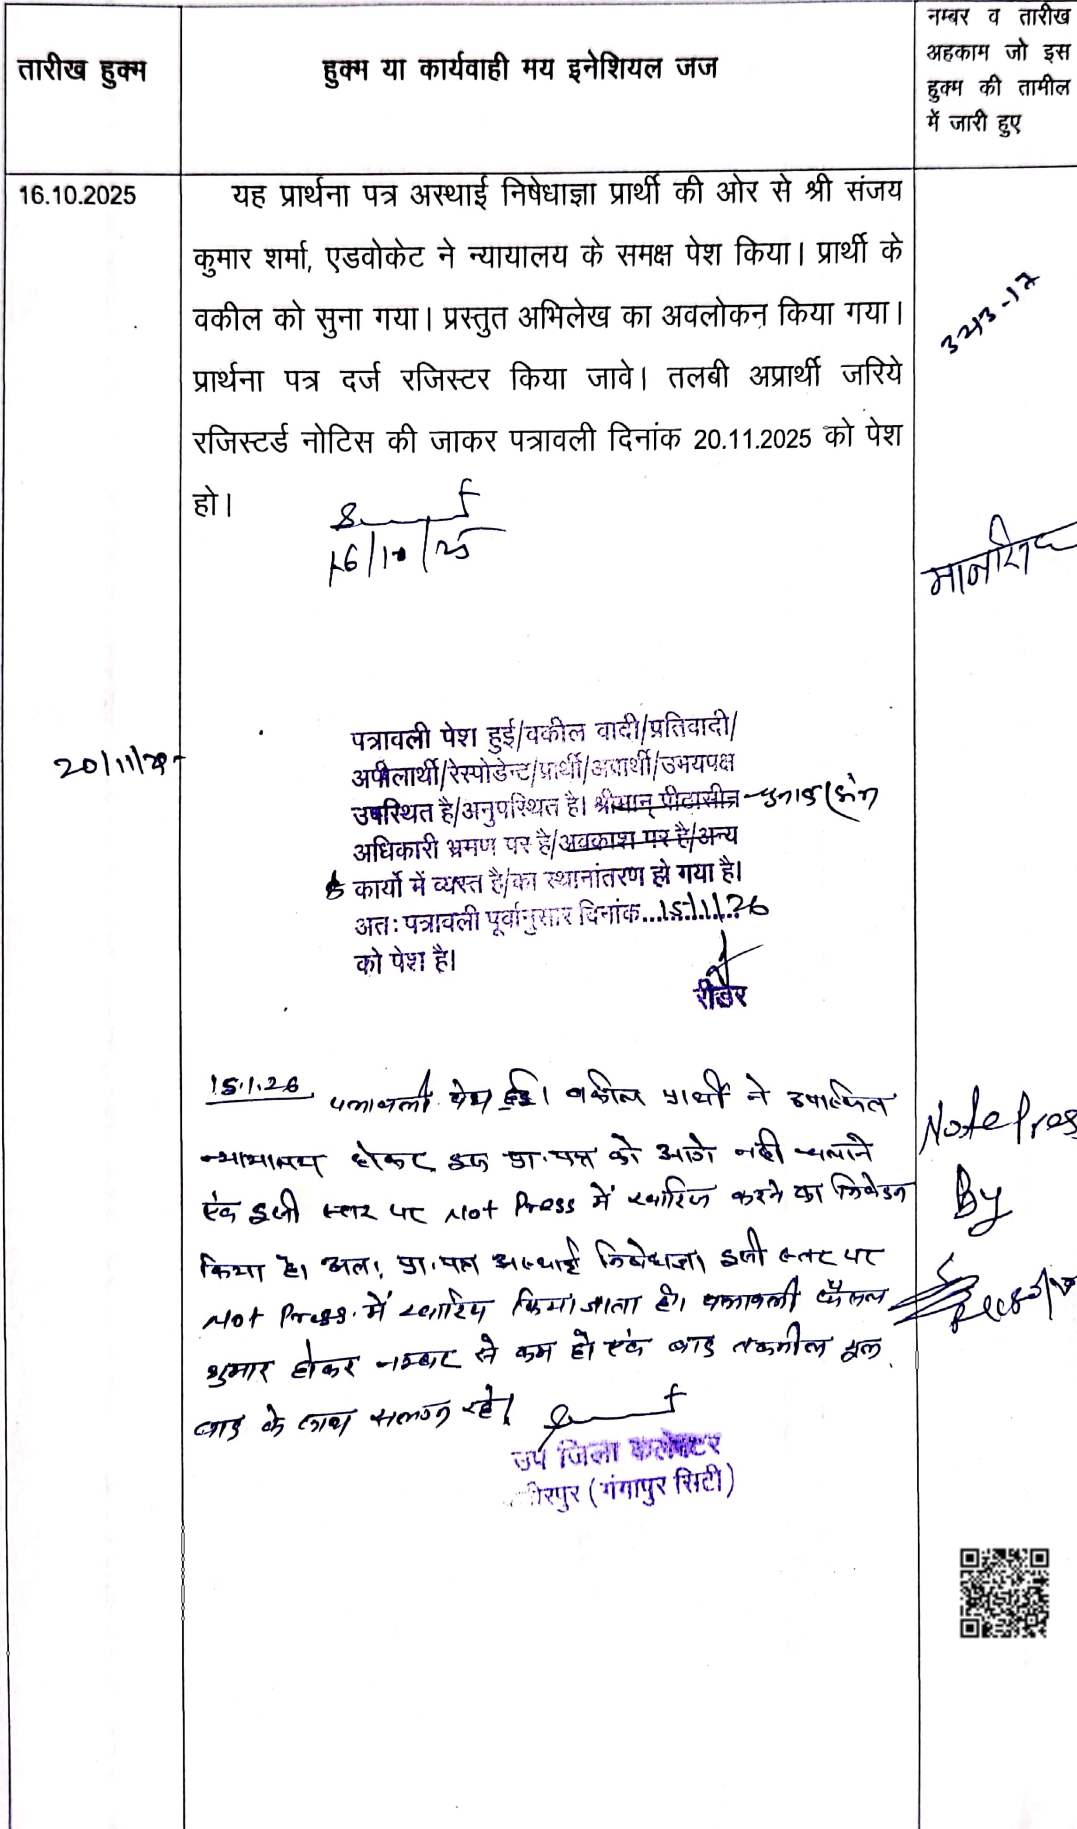 तारीख हुक्म
हुक्म या कार्यवाही मय इनेशियल जज
नम्बर व तारीख
अहकाम जो इस
हुक्म की तामील
में जारी हुए
16.10.2025
यह प्रार्थना पत्र अस्थाई निषेधाज्ञा प्रार्थी की ओर से श्री संजय
कुमार शर्मा, एडवोकेट ने न्यायालय के समक्ष पेश किया। प्रार्थी के
वकील को सुना गया। प्रस्तुत अभिलेख का अवलोकन किया गया।
प्रार्थना पत्र दर्ज रजिस्टर किया जावे। तलबी अप्रार्थी जरिये
रजिस्टर्ड नोटिस की जाकर पत्रावली दिनांक 20.11.2025 को पेश
हो।
16/10/25
20/11/25
पत्रावली पेश हुई/वकील वादी/प्रतिवादी/
अपीलार्थी/रेस्पोडेन्ट/प्रार्थी/अप्रार्थी/उभयपक्ष
उपस्थित है/अनुपस्थित है। श्रीमान् पीठासीन
अधिकारी भ्रमण पर है/अवकाश पर है/अन्य
कार्यो में व्यस्त है/का स्थानांतरण हो गया है।
अतः पत्रावली पूर्वानुसार दिनांक...15.1.26
को पेश है।
रीडर
15.1.26 पत्रावली पेश हुई। वकील प्रार्थी ने उपस्थित
न्यायालय होकर इस प्रा.पत्र को आगे नही चलाने
एंव इसी स्तर पर Not Press में खारिज करने का निवेदन
किया है। अतः प्रा.पत्र अस्थाई निषेधाज्ञा इसी स्तर पर
Not Press में खारिज किया जाता है। पत्रावली फैसल
शुमार होकर नम्बर से कम हो एंव बाद तकमील मूल
वाद के साथ सलग्न रहे।
Note Press
By
उप जिला कलेक्टर
(गंगापुर सिटी)